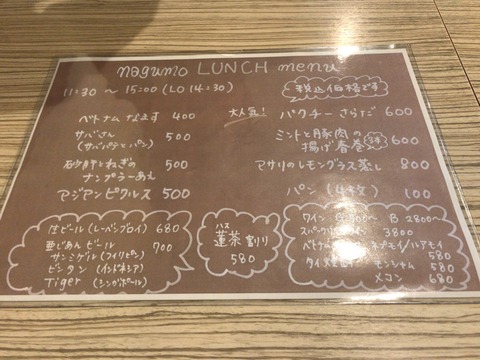 nagumo LUNCH menu
11:30 〜 15:00 (LO 14:30)
税込価格です
ベトナム なます 400
サバさん 500
(サバパテとパン)
砂肝とねぎの
ナンプラーあえ 500
アジアンピクルス 500
大人気! パクチー さらだ 600
ミントと豚肉の
揚げ春巻 600
アサリのレモングラス蒸し 800
パン (4枚) 100
生ビール (レーベンブロイ) 680
亜じあんビール 700
サンミゲル (フィリピン)
ビンタン (インドネシア)
Tiger (シンガポール)
ハス
蓮茶割り
580
ワイン 〜 B 2800〜
スパークリング 3800
ベトナム ネプモイ/ルアモイ
580
タイ モンシャム
580
メコン 680